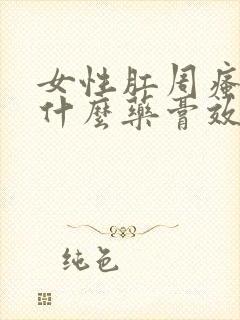 女性肛周瘙
什麼藥膏效
纯色